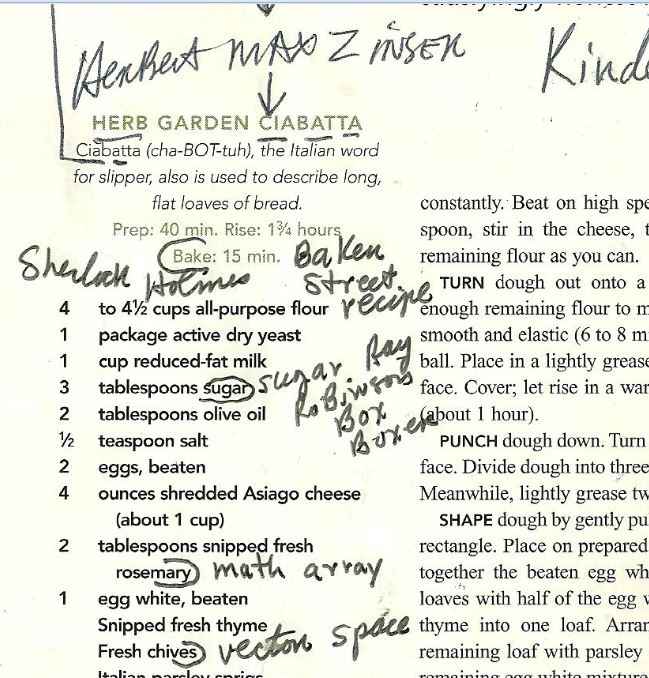 Herbert MAX ZINSER
Kinde
HERB GARDEN CIABATTA
Ciabatta (cha-BOT-tuh), the Italian word
for slipper, also is used to describe long,
flat loaves of bread.
Prep: 40 min. Rise: 1¾ hours
Bake: 15 min.
Baker
Street
recipe
Sherlock
Holmes
4 to 4½ cups all-purpose flour
1 package active dry yeast
1 cup reduced-fat milk
3 tablespoons sugar
sugar Ray
Robinson
Box
Boxer
2 tablespoons olive oil
½ teaspoon salt
2 eggs, beaten
4 ounces shredded Asiago cheese
(about 1 cup)
2 tablespoons snipped fresh
rosemary
math array
1 egg white, beaten
Snipped fresh thyme
Fresh chives
vector space
Italian parsley sprigs
constantly. Beat on high spe
spoon, stir in the cheese, t
remaining flour as you can.
TURN dough out onto a
enough remaining flour to m
smooth and elastic (6 to 8 m
ball. Place in a lightly grease
face. Cover; let rise in a war
(about 1 hour).
PUNCH dough down. Turn
face. Divide dough into three
Meanwhile, lightly grease tw
SHAPE dough by gently pu
rectangle. Place on prepared
together the beaten egg wh
loaves with half of the egg w
thyme into one loaf. Arran
remaining loaf with parsley
remaining egg white mixture